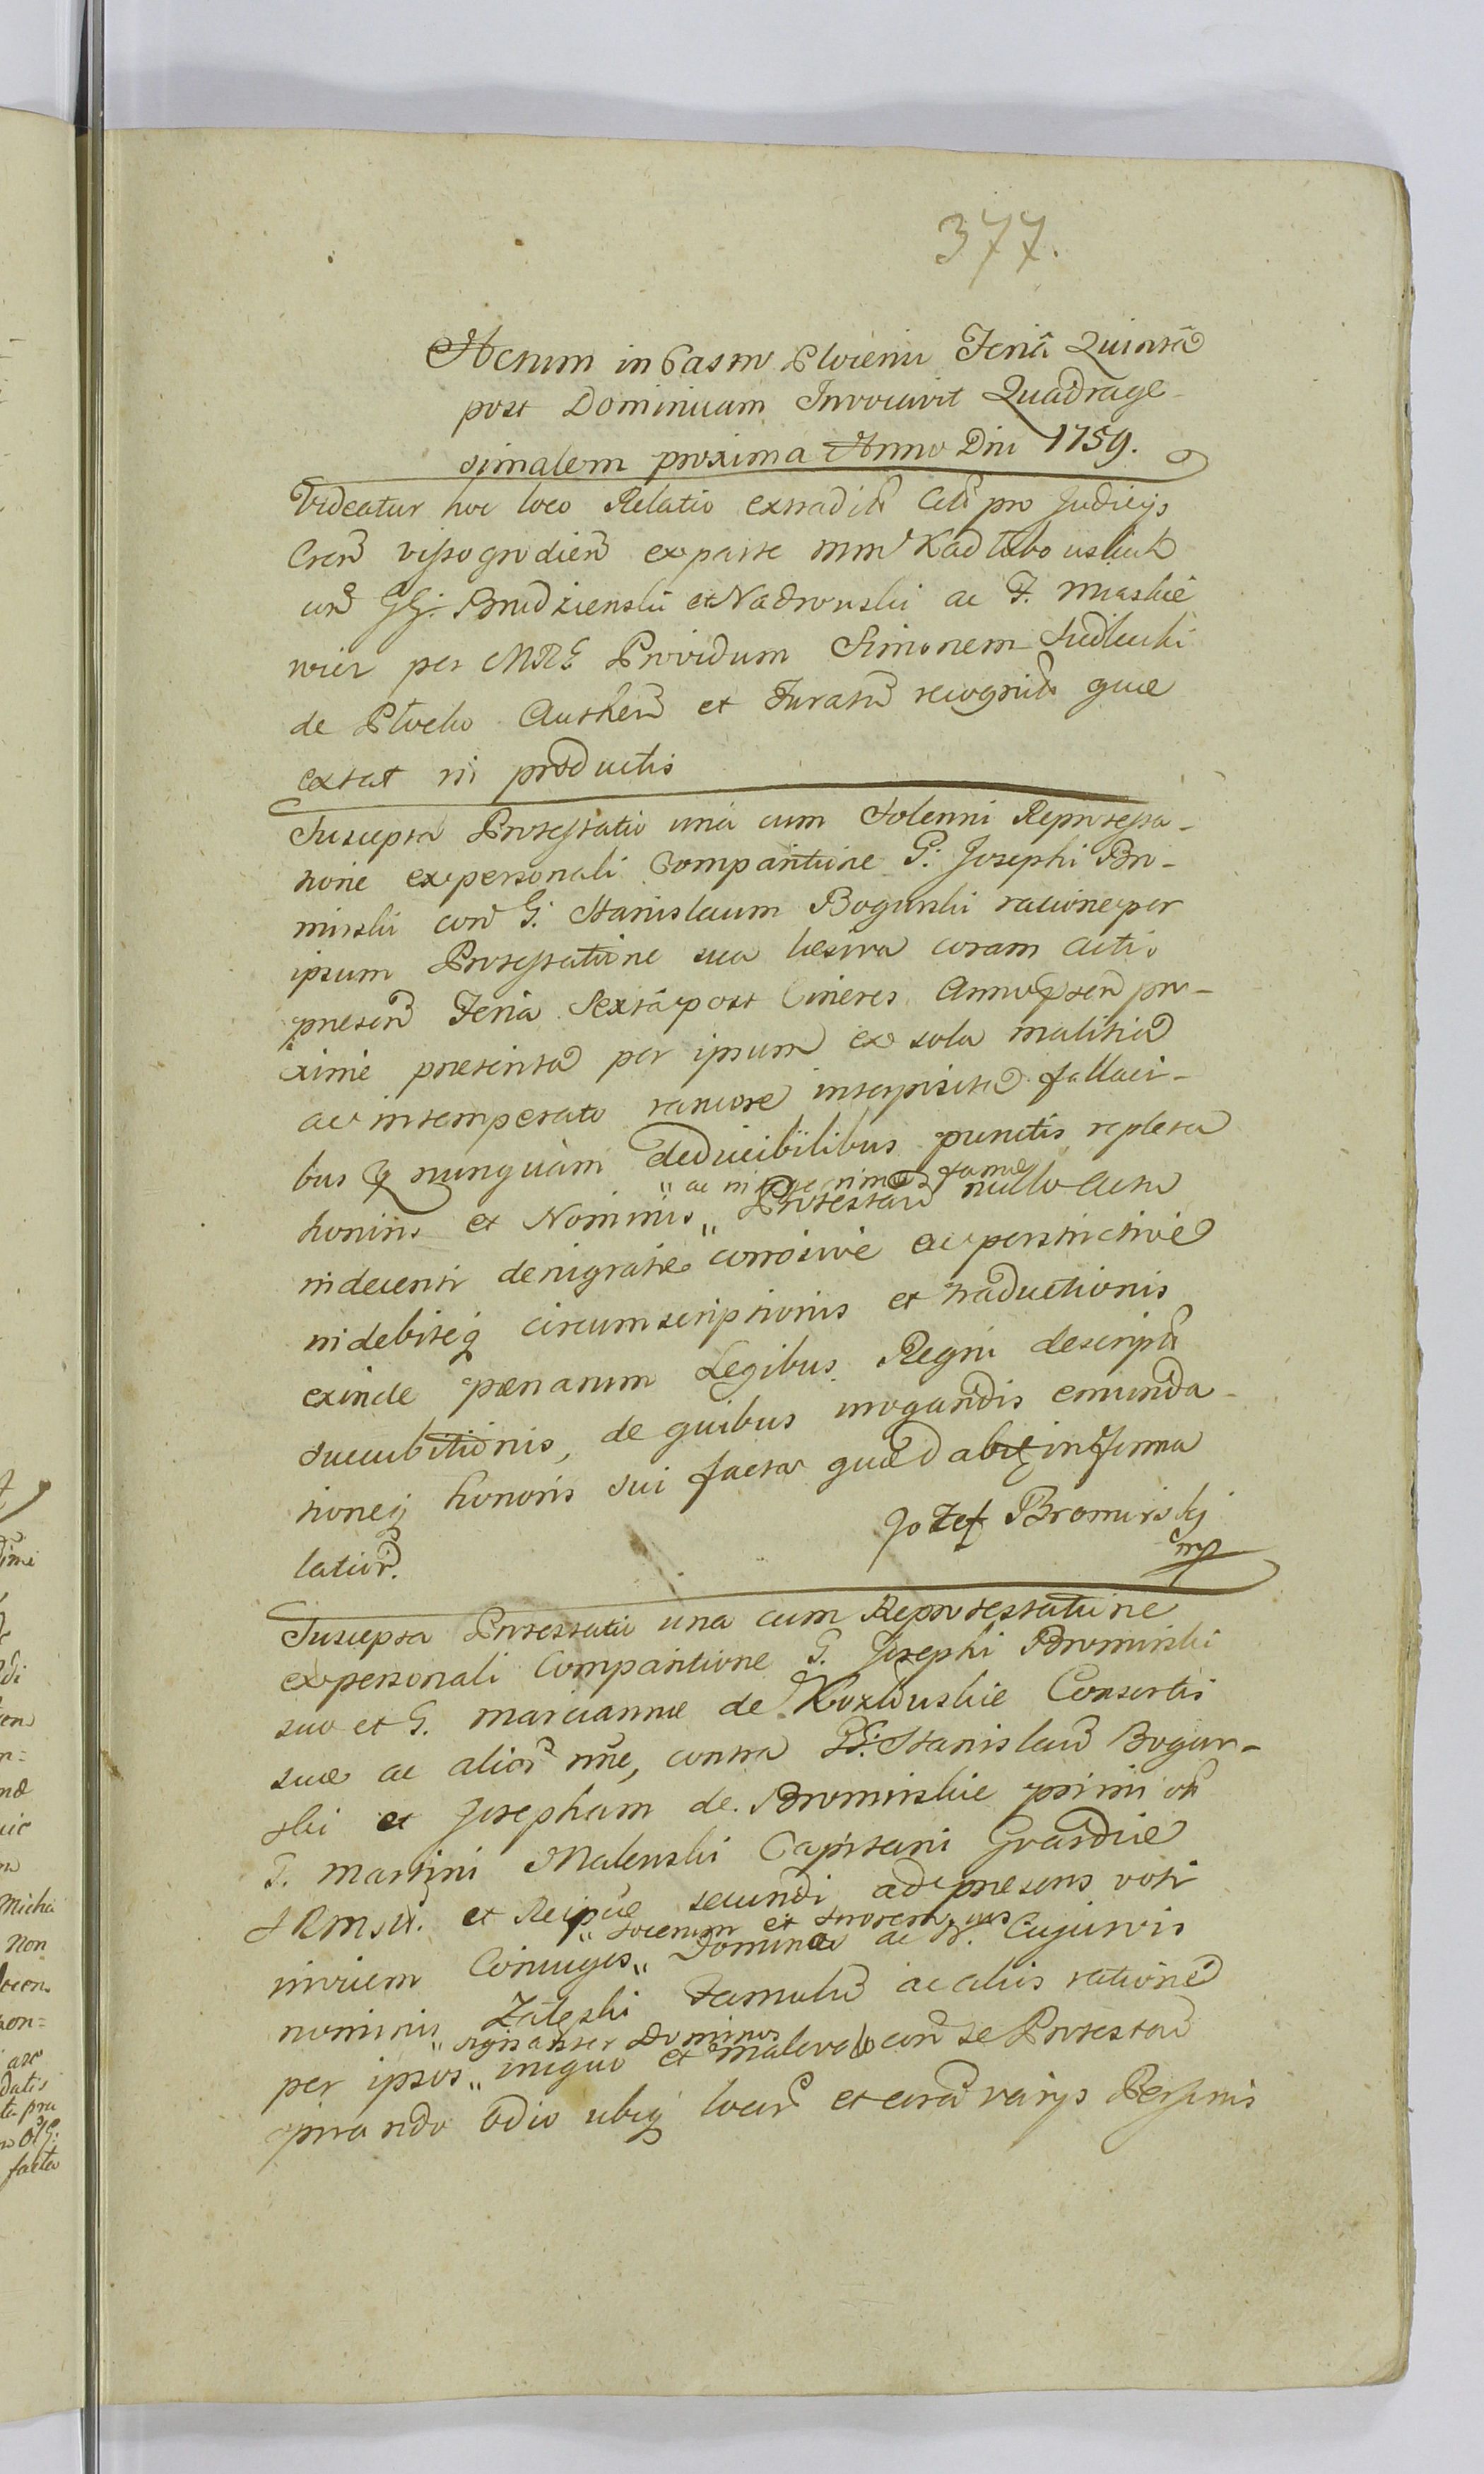 377.
Actum in Castro Plocensi Feriâ Quintâ
post Dominicam Invocavit Quadrage-
simalem proxima Anno Dni 1759.
Videatur hoc loco Relatio extradit Cit pro Judicijs
Cren vissogrodien ex parte Mm Kadłubowskich
con GG. Brudzienski et Nadrowski ac F. Miaskie
wicz per MRG Providum Simonem Siedlecki
de Plocko Authen et Juratum recognit quæ
extat in productis
Suscepta Protestatio una cum Solenni Reprotesta-
tione ex personali Comparitione G. Josephi Bro-
mirski con G. Stanislaum Bogurski racione per
ipsum Protestatione sua lesiva coram actis
præsen Feria Sexta post Cineres Anno præsen pro-
xime præterita per ipsum ex sola malitia
ac intemperato rancore interposita fallaci-
bus & nunquam deducibilibus punctis repleta
" ac integerrimæ famæ
honoris et Nominis " Protestan nullo actu
indecenti denigratæ corrosive ac perstrictive
indebiteq circumscriptionis et traductionis
exinde pænarum Legibus Regni descript
succubitionis, de quibus irrogandis emunda-
tioneq honoris sui factæ quæd in forma
latiori.
Jozef Bromirskj
mp
Suscepta Protestatio una cum Reprotestatione
ex personali Comparitione G. Josephi Bromirski
suo et G. Mariannæ de Kozłowskie Consortis
suæ ac alior nne, contra GG. Stanislaum Bogur-
ski et Josepham de Bromirskie primi
G. Martini Malenski Capitani Gvardiæ
SRMsti. et Reipcæ secundi ad præsens voti
" Socerum et Sororem suos
invicem Coniuges " Dominos ac F. Cujusvis
nominis Zaleski Famulum ac aliis ratione
" signanter Dominos
per ipsos " iniquo et malevolo con se Protestan
spirando odio ubiq locor et coram varijs Personis